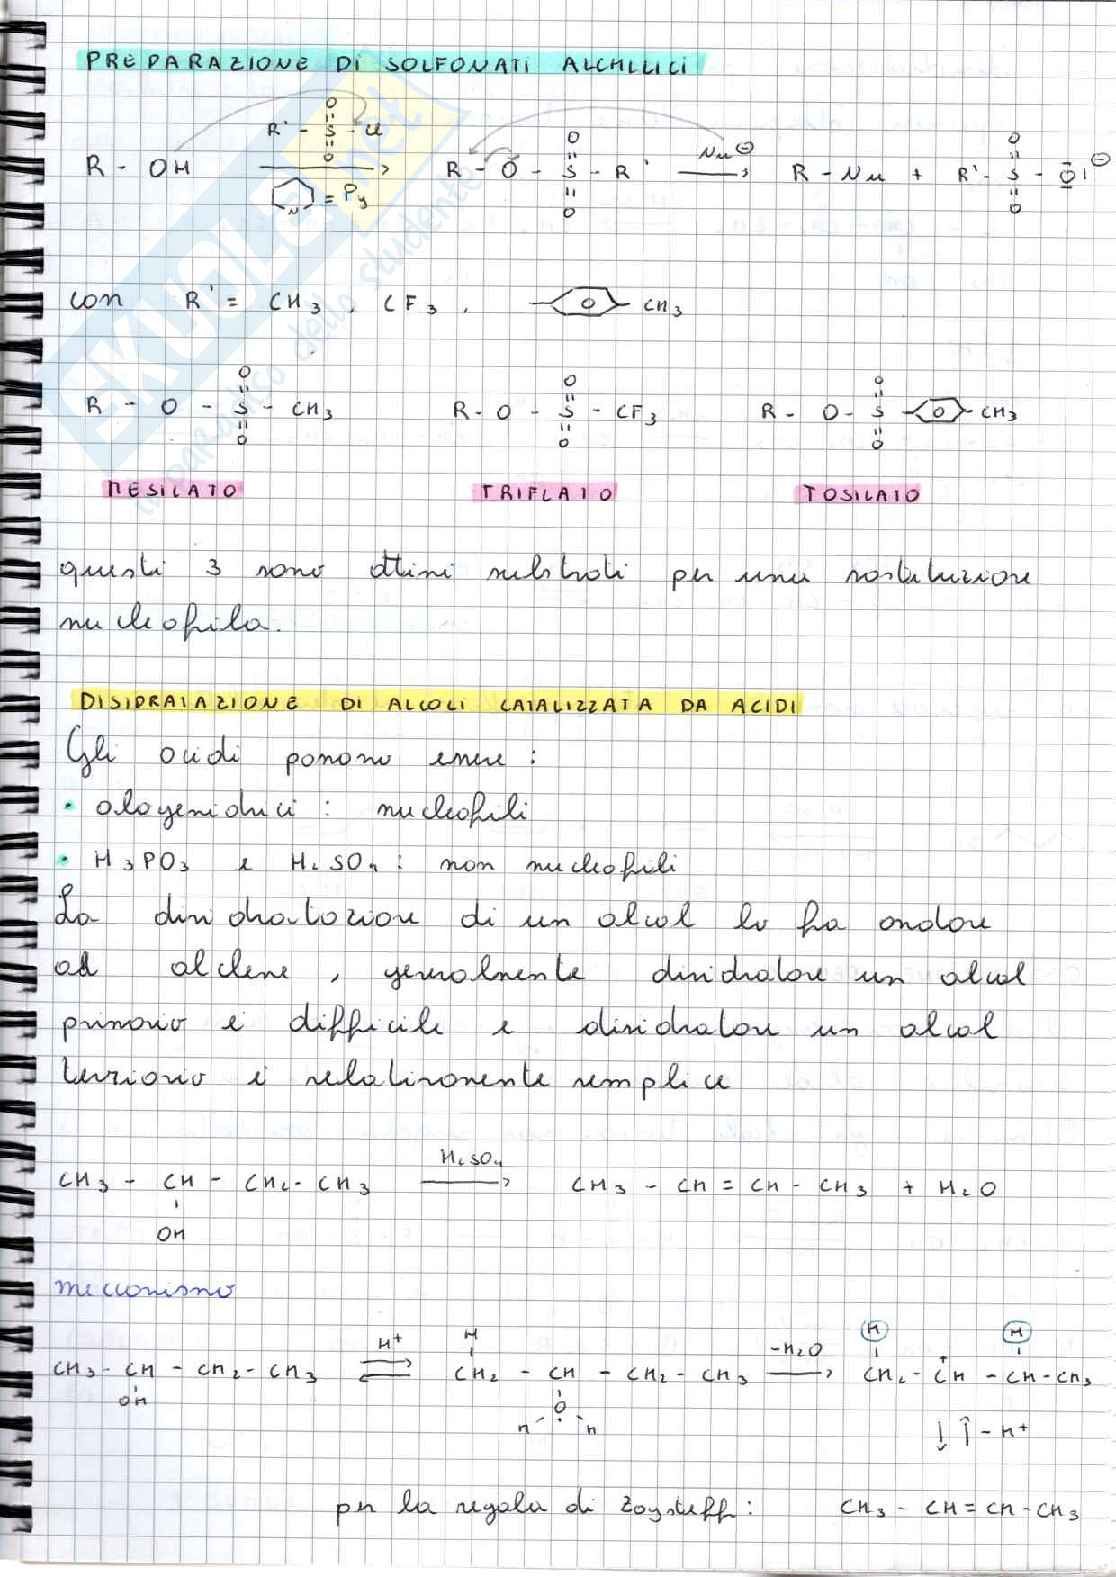 PREPARAZIONE DI SOLFONATI ALCHILICI
R - OH  R' - S - Cl  R - O - S - R'  Nu⊖  R - Nu + R' - S - O⊖
N = Py
con R' = CH3, CF3, CH3
R - O - S - CH3  R - O - S - CF3  R - O - S - CH3
MESILATO  TRIFLATO  TOSILATO
questi 3 sono ottimi substrati per una sostituzione
nucleofila.
DISIDRATAZIONE DI ALCOLI CATALIZZATA DA ACIDI
Gli acidi possono essere :
• alogenidrici : nucleofili
• H3PO3 e H2SO4 : non nucleofili
La disidratazione di un alcol lo fa andare
ad alchene , generalmente disidratare un alcol
primario è difficile e disidratare un alcol
terziario è relativamente semplice
CH3 - CH - CH2 - CH3  H2SO4  CH3 - CH = CH - CH3 + H2O
OH
meccanismo
CH3 - CH - CH2 - CH3  H+  CH2 - CH - CH2 - CH3  -H2O  CH2 - CH - CH - CH3
OH  H  O  H  H  H  H  + 
- H+
per la regola di Zaysteff : CH3 - CH = CH - CH3